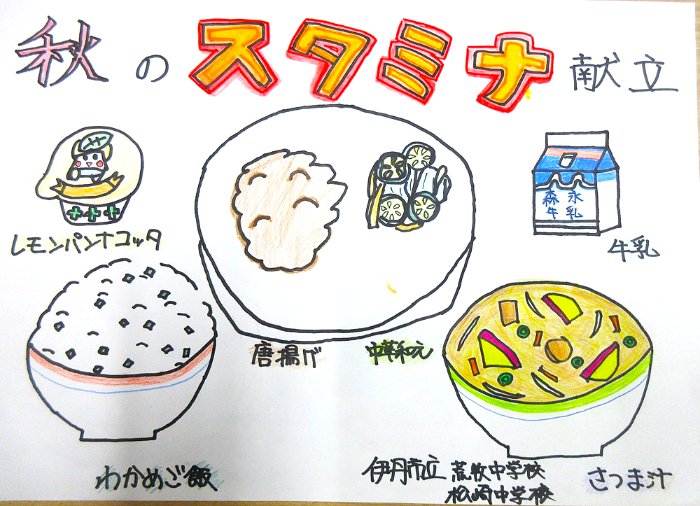 秋のスタミナ献立
レモンパンナコッタ
森永
牛乳
牛乳
唐揚げ
中華和え
わかめご飯
伊丹市立 荒牧中学校
松崎中学校
さつま汁